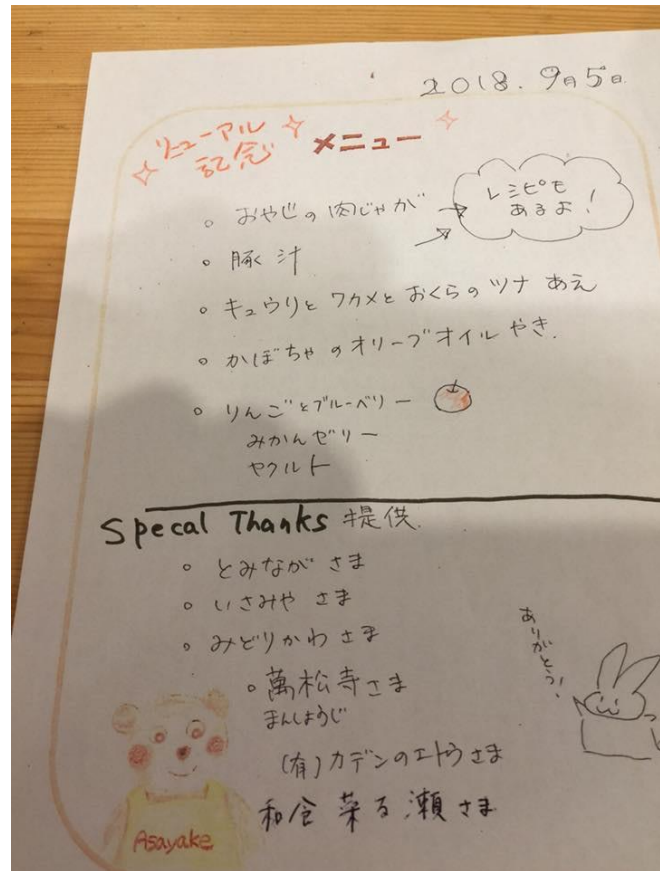 2018. 9月5日
リニューアル
記念
メニュー
おやじの肉じゃが
レシピも
あるよ!
豚汁
キュウリとワカメとおくらのツナあえ
かぼちゃのオリーブオイルやき.
りんごとブルーベリー
みかんゼリー
ヤクルト
Specal Thanks 提供.
とみながさま
いさみやさま
みどりかわさま
萬松寺さま
まんしょうじ
(有)カデンのエトウさま
和食 菜る瀬さま
ありがとう!
Asayake